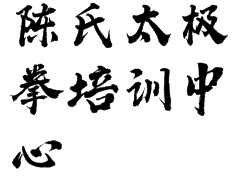 陈氏太极
拳培训中
心